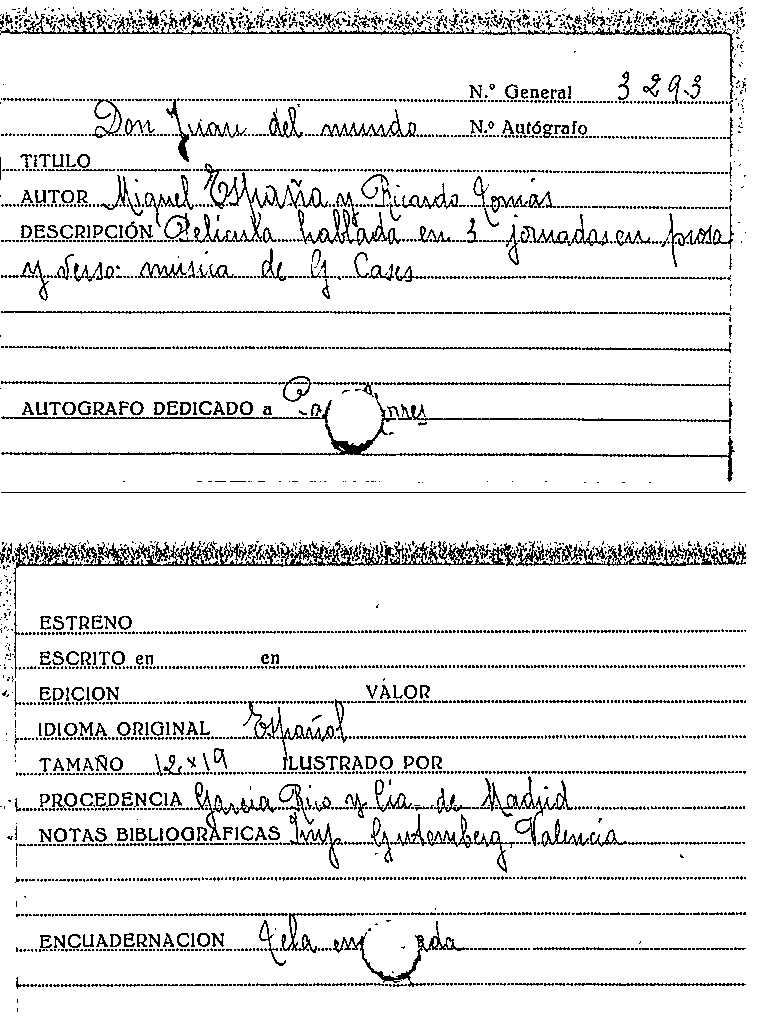 N.º General 3293
Don Juan del mundo N.º Autógrafo
TITULO
AUTOR Miguel España y Ricardo Tomás
DESCRIPCIÓN Película hablada en 3 jornadas en prosa
y verso: música de G. Cases
AUTOGRAFO DEDICADO a
ESTRENO
ESCRITO en en
EDICION VALOR
IDIOMA ORIGINAL Español
TAMAÑO 12x19 ILUSTRADO POR
PROCEDENCIA García Rico y Cía. de Madrid
NOTAS BIBLIOGRÁFICAS Imp. Gutemberg, Valencia
ENCUADERNACION Tela